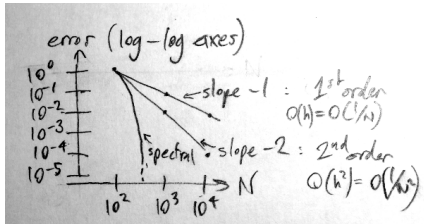 error (log-log axes)
10⁰
10⁻¹
10⁻²
10⁻³
10⁻⁴
10⁻⁵
slope -1 : 1st order
O(h) = O(1/N)
spectral
slope -2 : 2nd order
O(h²) = O(1/N²)
10² 10³ 10⁴
N